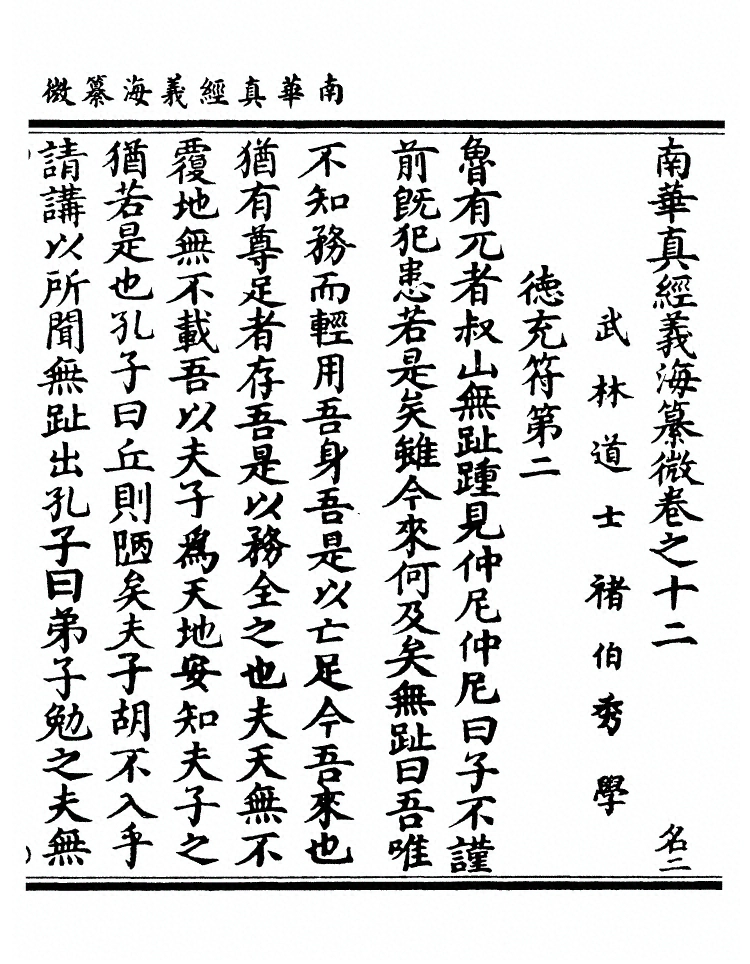 南華真經義海纂微
南華真經義海纂微卷之十二
名二
武林道士褚伯秀學
德充符第二
魯有兀者叔山無趾踵見仲尼仲尼曰子不謹
前既犯患若是矣雖今來何及矣無趾曰吾唯
不知務而輕用吾身吾是以亡足今吾來也
猶有尊足者存吾是以務全之也夫天無不
覆地無不載吾以夫子為天地安知夫子之
猶若是也孔子曰丘則陋矣夫子胡不入乎
請講以所聞無趾出孔子曰弟子勉之夫無